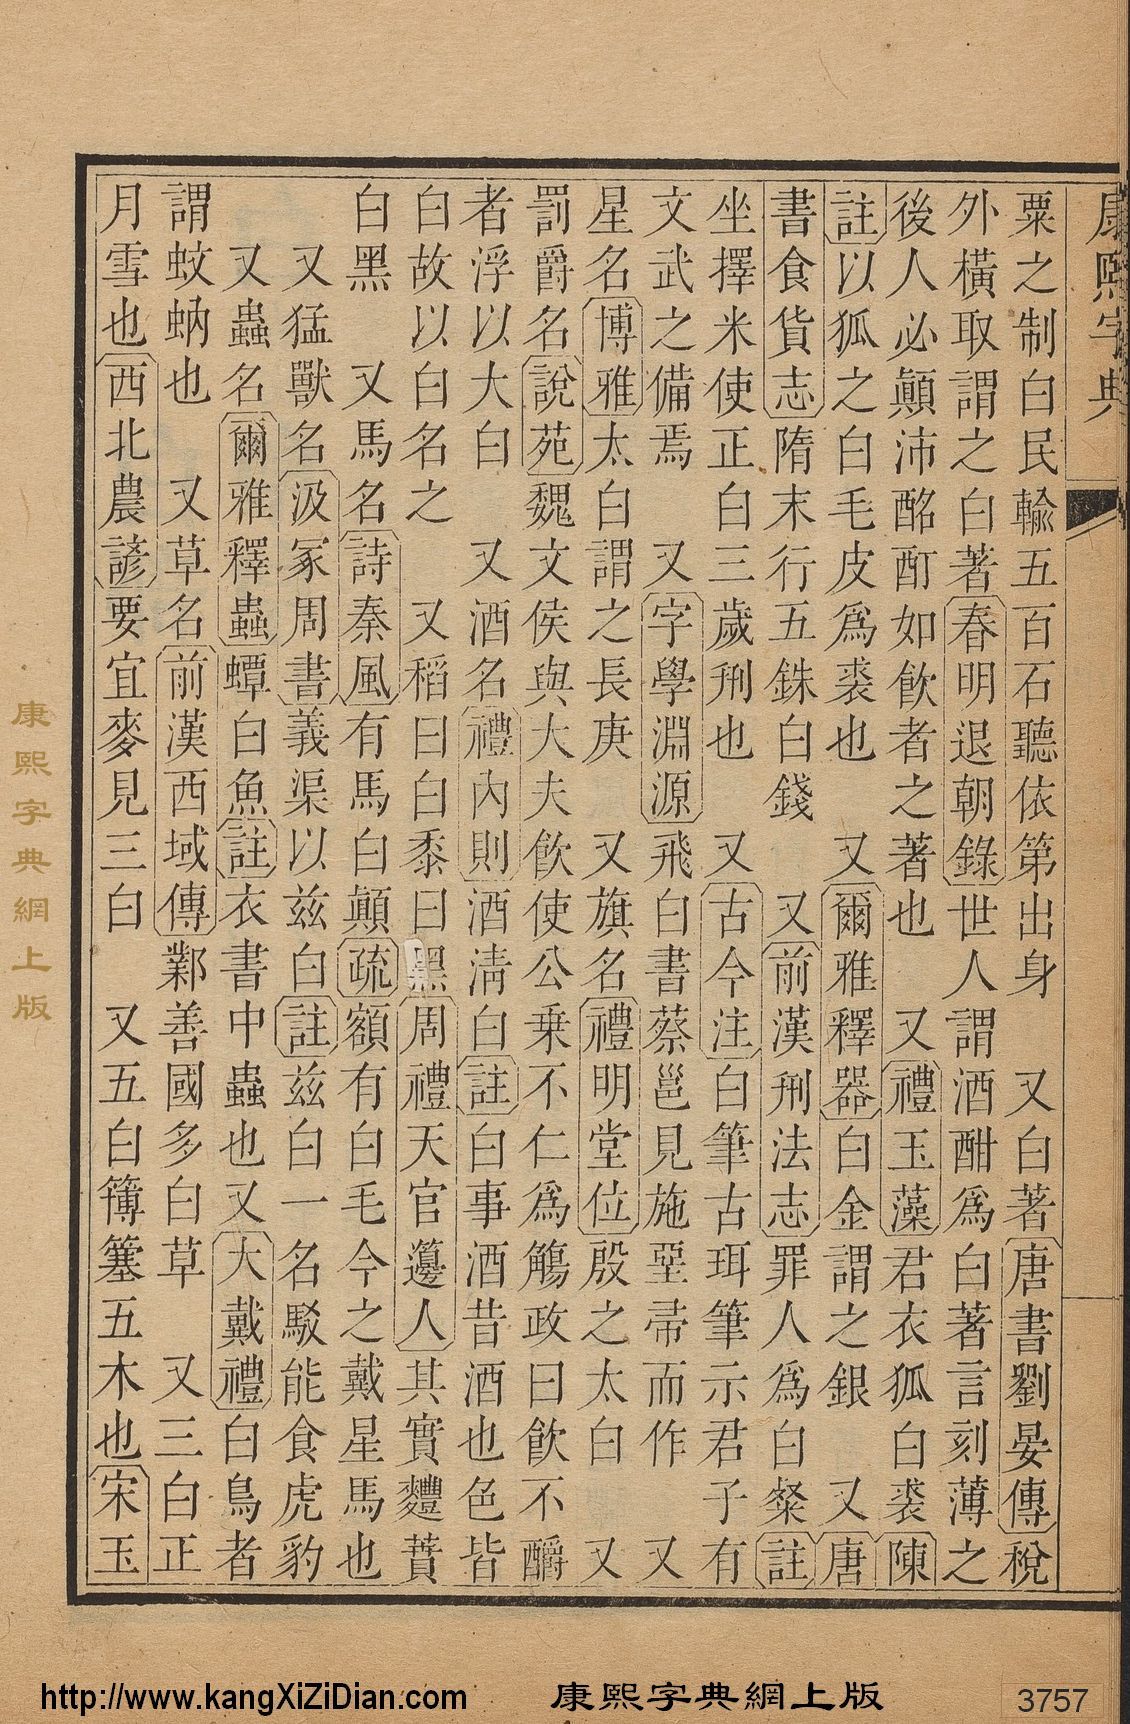 康熙字典
粟之制白民輸五百石聽依第出身　又白著唐書劉晏傳稅
外橫取謂之白著春明退朝錄世人謂酒酣爲白著言刻薄之
後人必顚沛酩酊如飮者之著也　又禮玉藻君衣狐白裘陳
註以狐之白毛皮爲裘也　又爾雅釋器白金謂之銀　又唐
書食貨志隋末行五銖白錢　又前漢刑法志罪人爲白粲註
坐擇米使正白三歲刑也　又古今注白筆古珥筆示君子有
文武之備焉　又字學淵源飛白書蔡邕見施堊帚而作　又
星名博雅太白謂之長庚　又旗名禮明堂位殷之太白　又
罰爵名說苑魏文侯與大夫飮使公乗不仁爲觴政曰飮不釂
者浮以大白　又酒名禮內則酒淸白註白事酒昔酒也色皆
白故以白名之　又稻曰白黍曰黑周禮天官籩人其實麷蕡
白黑　又馬名詩秦風有馬白顚疏額有白毛今之戴星馬也
又猛獸名汲冢周書義渠以茲白註茲白一名駮能食虎豹
又蟲名爾雅釋蟲蟫白魚註衣書中蟲也又大戴禮白鳥者
謂蚊蚋也　又草名前漢西域傳鄯善國多白草　又三白正
月雪也西北農諺要宜麥見三白　又五白簿簺五木也宋玉
康熙字典網上版
http://www.kangXiZiDian.com 康熙字典網上版 3757